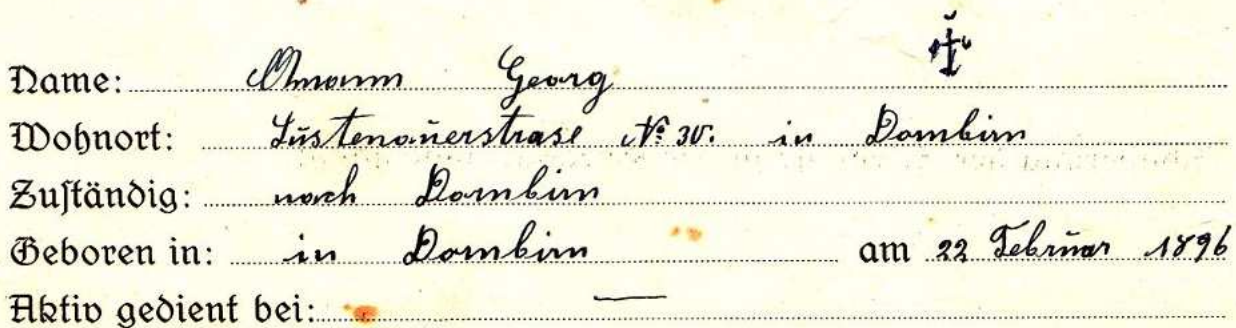 Name: Amann Georg
Wohnort: Lustenauerstrase No 30. in Dornbirn
Zuständig: nach Dornbirn
Geboren in: in Dornbirn am 22 Februar 1896
Aktiv gedient bei: —